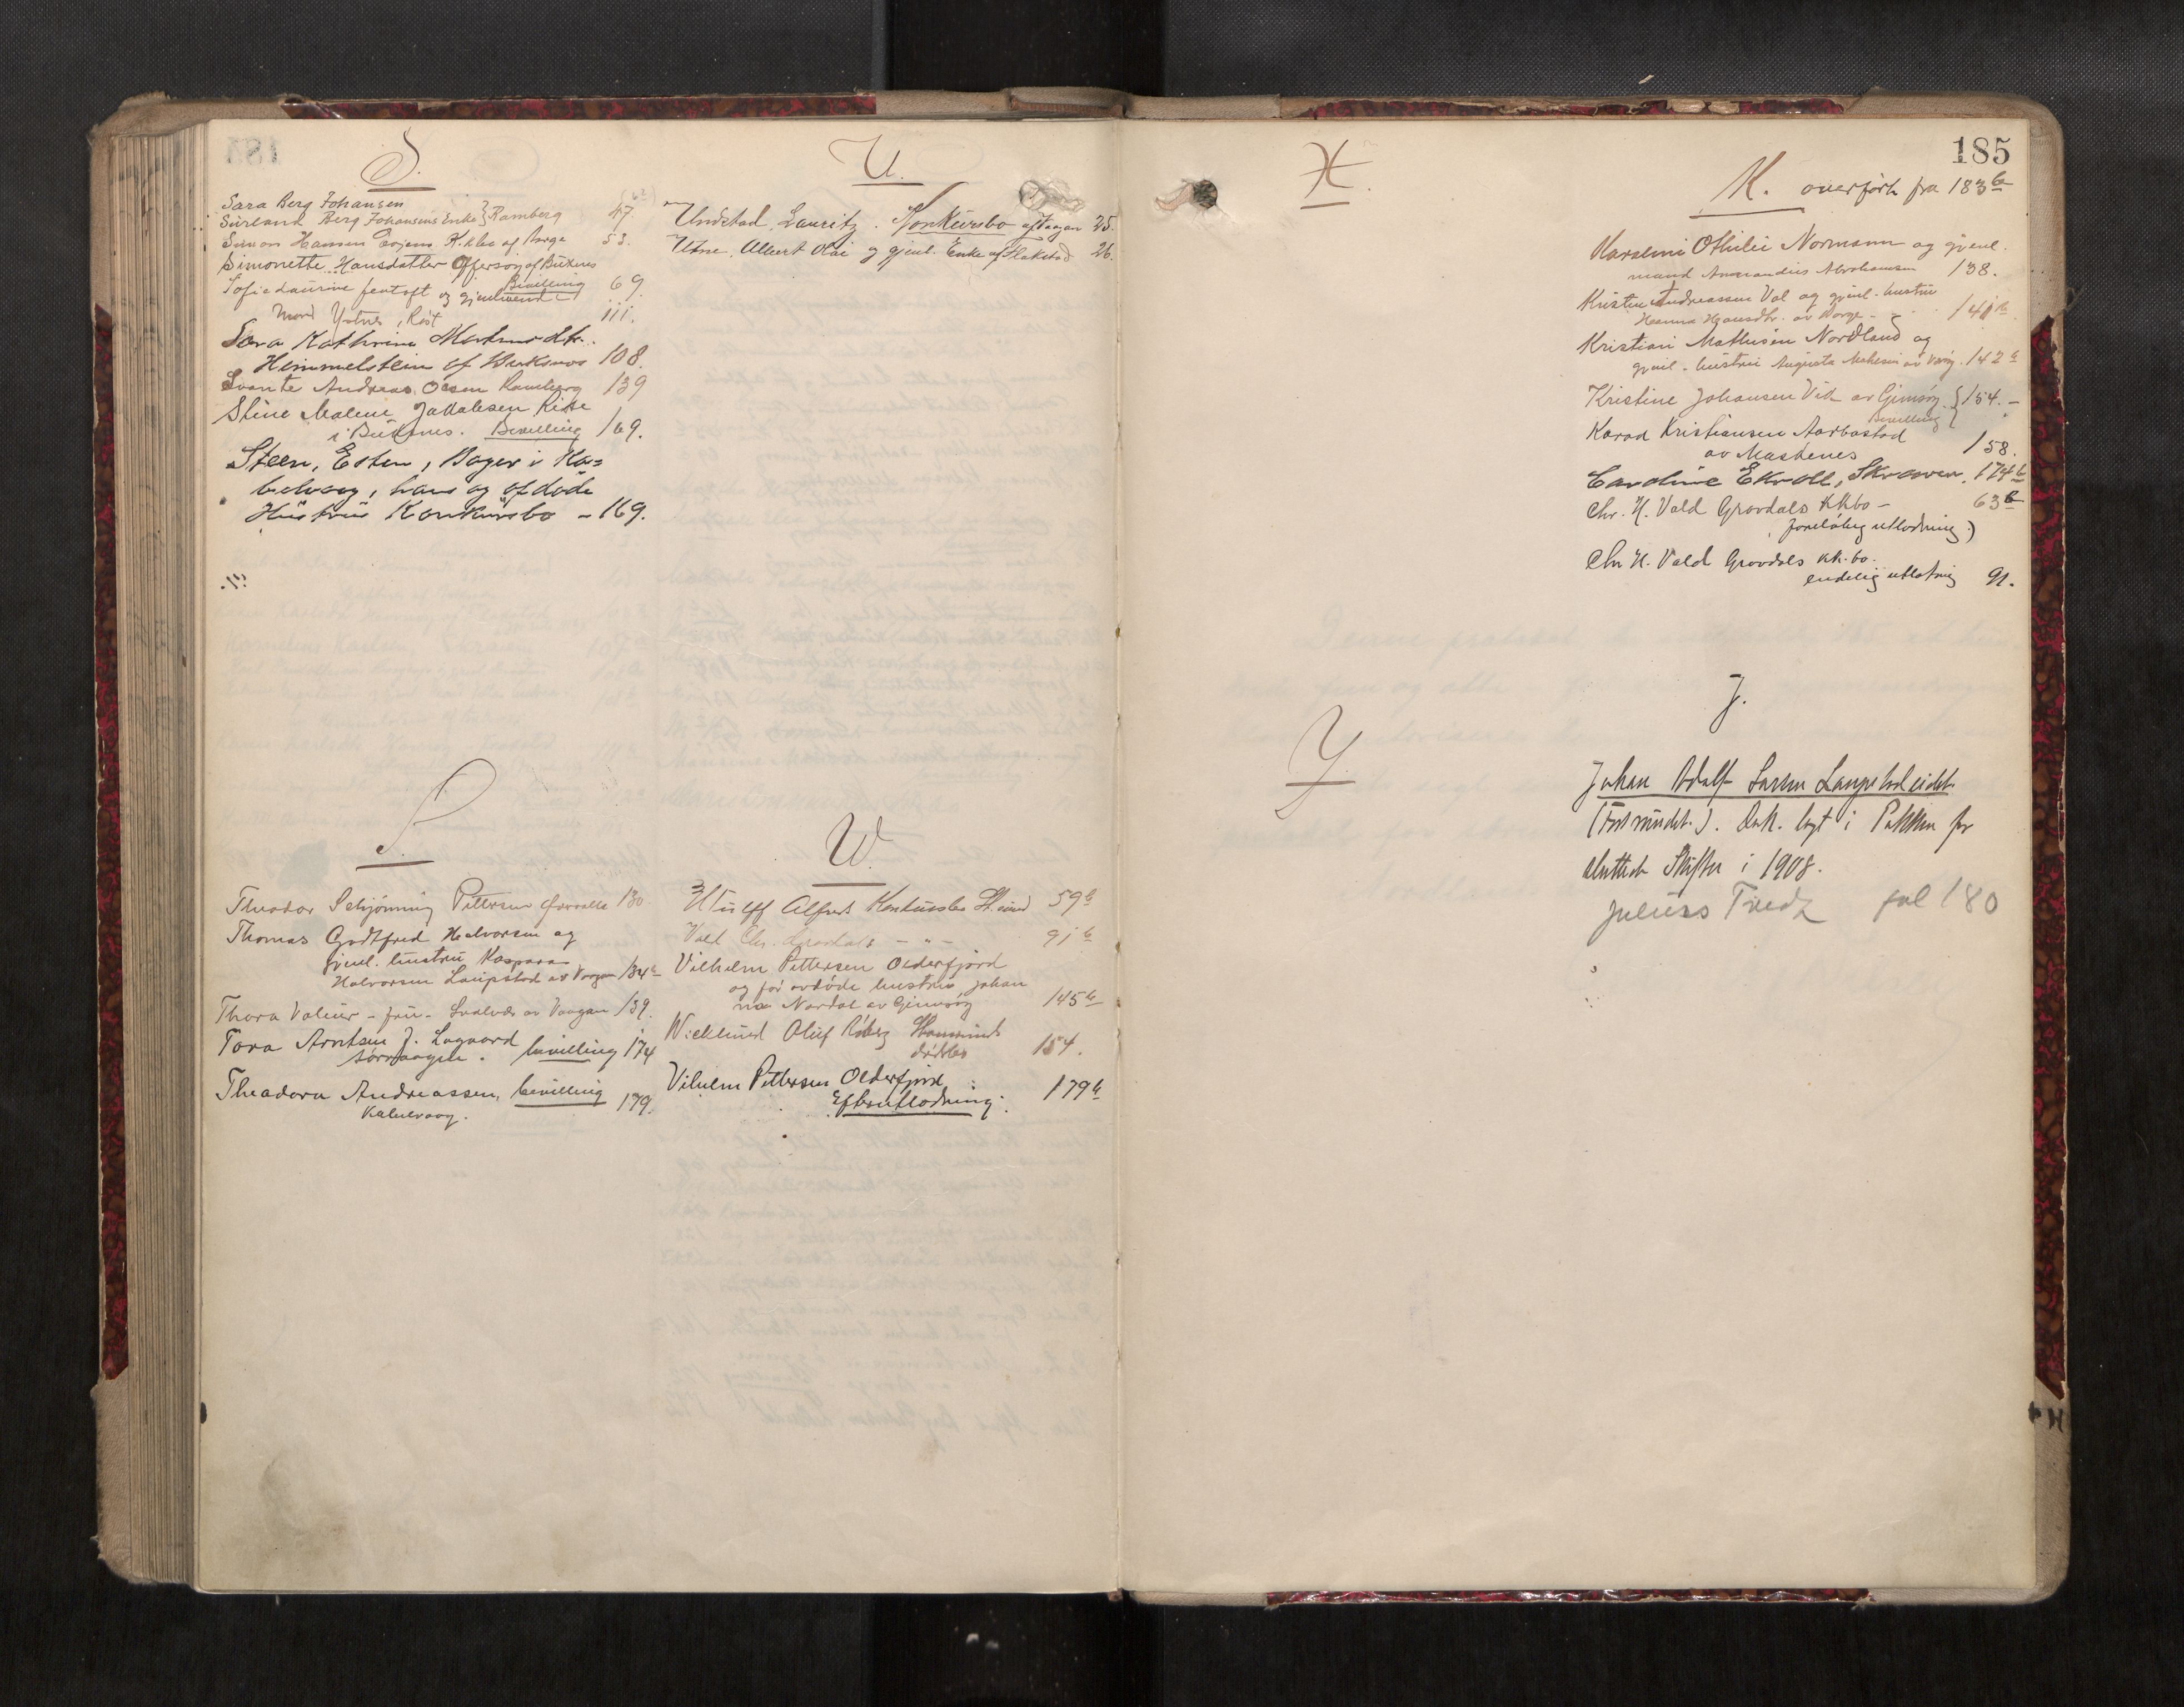 S.
Sara Berg Johansen
Berg Johansens Enke } Ramberg 47
Simon Hansen K.kbo af Borge 53.
Simonette Hansdatter Offersöy af Buksnes
Bevilling 69
Sofie Laurine og gjenlevende
mand Yttres, Röst 111.
Sara Kathrina Martinusdtr.
Himmelstein af Buksnes 108.
Svante Andreas Olsen Ramberg 139
Stine Malene Jakobsen
i Buksnes. Bevilling 169.
Steen, Esten, Bager i Ka=
belvaag, hans og afdöde
Hustrus Konkursbo - 169.
T.
Theodor Schjönning Pettersen 130
Thomas Godtfred Halvorsen og
gjenl. hustru Kaspara
Halvorsen Laupstad av Vaagan 134b
Thora Valeur - frue - Svolvær av Vaagan 139.
Tora Arntsen f. Lagaard
Sörvaagen. bevilling 174
Theodora Andreassen, bevilling
Kabelvaag. 179.
U.
Undstad, Lauritz. Konkursbo af Vaagan 25.
Utne, Albert Olai og gjenl. Enke af Flakstad 26.
W.
Wulff Alfred Konkursbo St.sund 59b
Vald Chr. Gravdals - " - 91b
Vilhelm Pettersen Olderfjord
og før avdøde hustru Johan
na Nardal av Gimsöy 145b
Wicklund Oluf Stamsund
dödsbo 154.
Vilhelm Pettersen Olderfjord
Efterutlodning. 179b
185
X.
Y.
K. overført fra 183b
Karoline Othilie Normann og gjenl.
mand Amandus Abrahamsen 138.
Kristen Andreassen Val og gjenl. hustru
Hanna Hansdtr. av Borge - 141b.
Kristian Mathisen Nordland og
gjenl. hustru Augusta Mathisen av Værøy. 142b
Kristine Johansen Vik av Gimsöy } 154. -
Bevilling
Karad Kristiansen Aarbostad
av Moskenes 158.
Caroline Ekroll, Skroven. 174b
Chr. H. Vald Gravdals kkbo - 63b
foreløbig utlodning.)
Chr. H. Vald Gravdals kk.bo.
endelig utlodning 91.
J.
Johan Adolf Larsen Laupstadeidet
(Fast msdt.). Dok. lagt i Pakken for
sluttede Skifter i 1908.
Julius Fredz fol 180